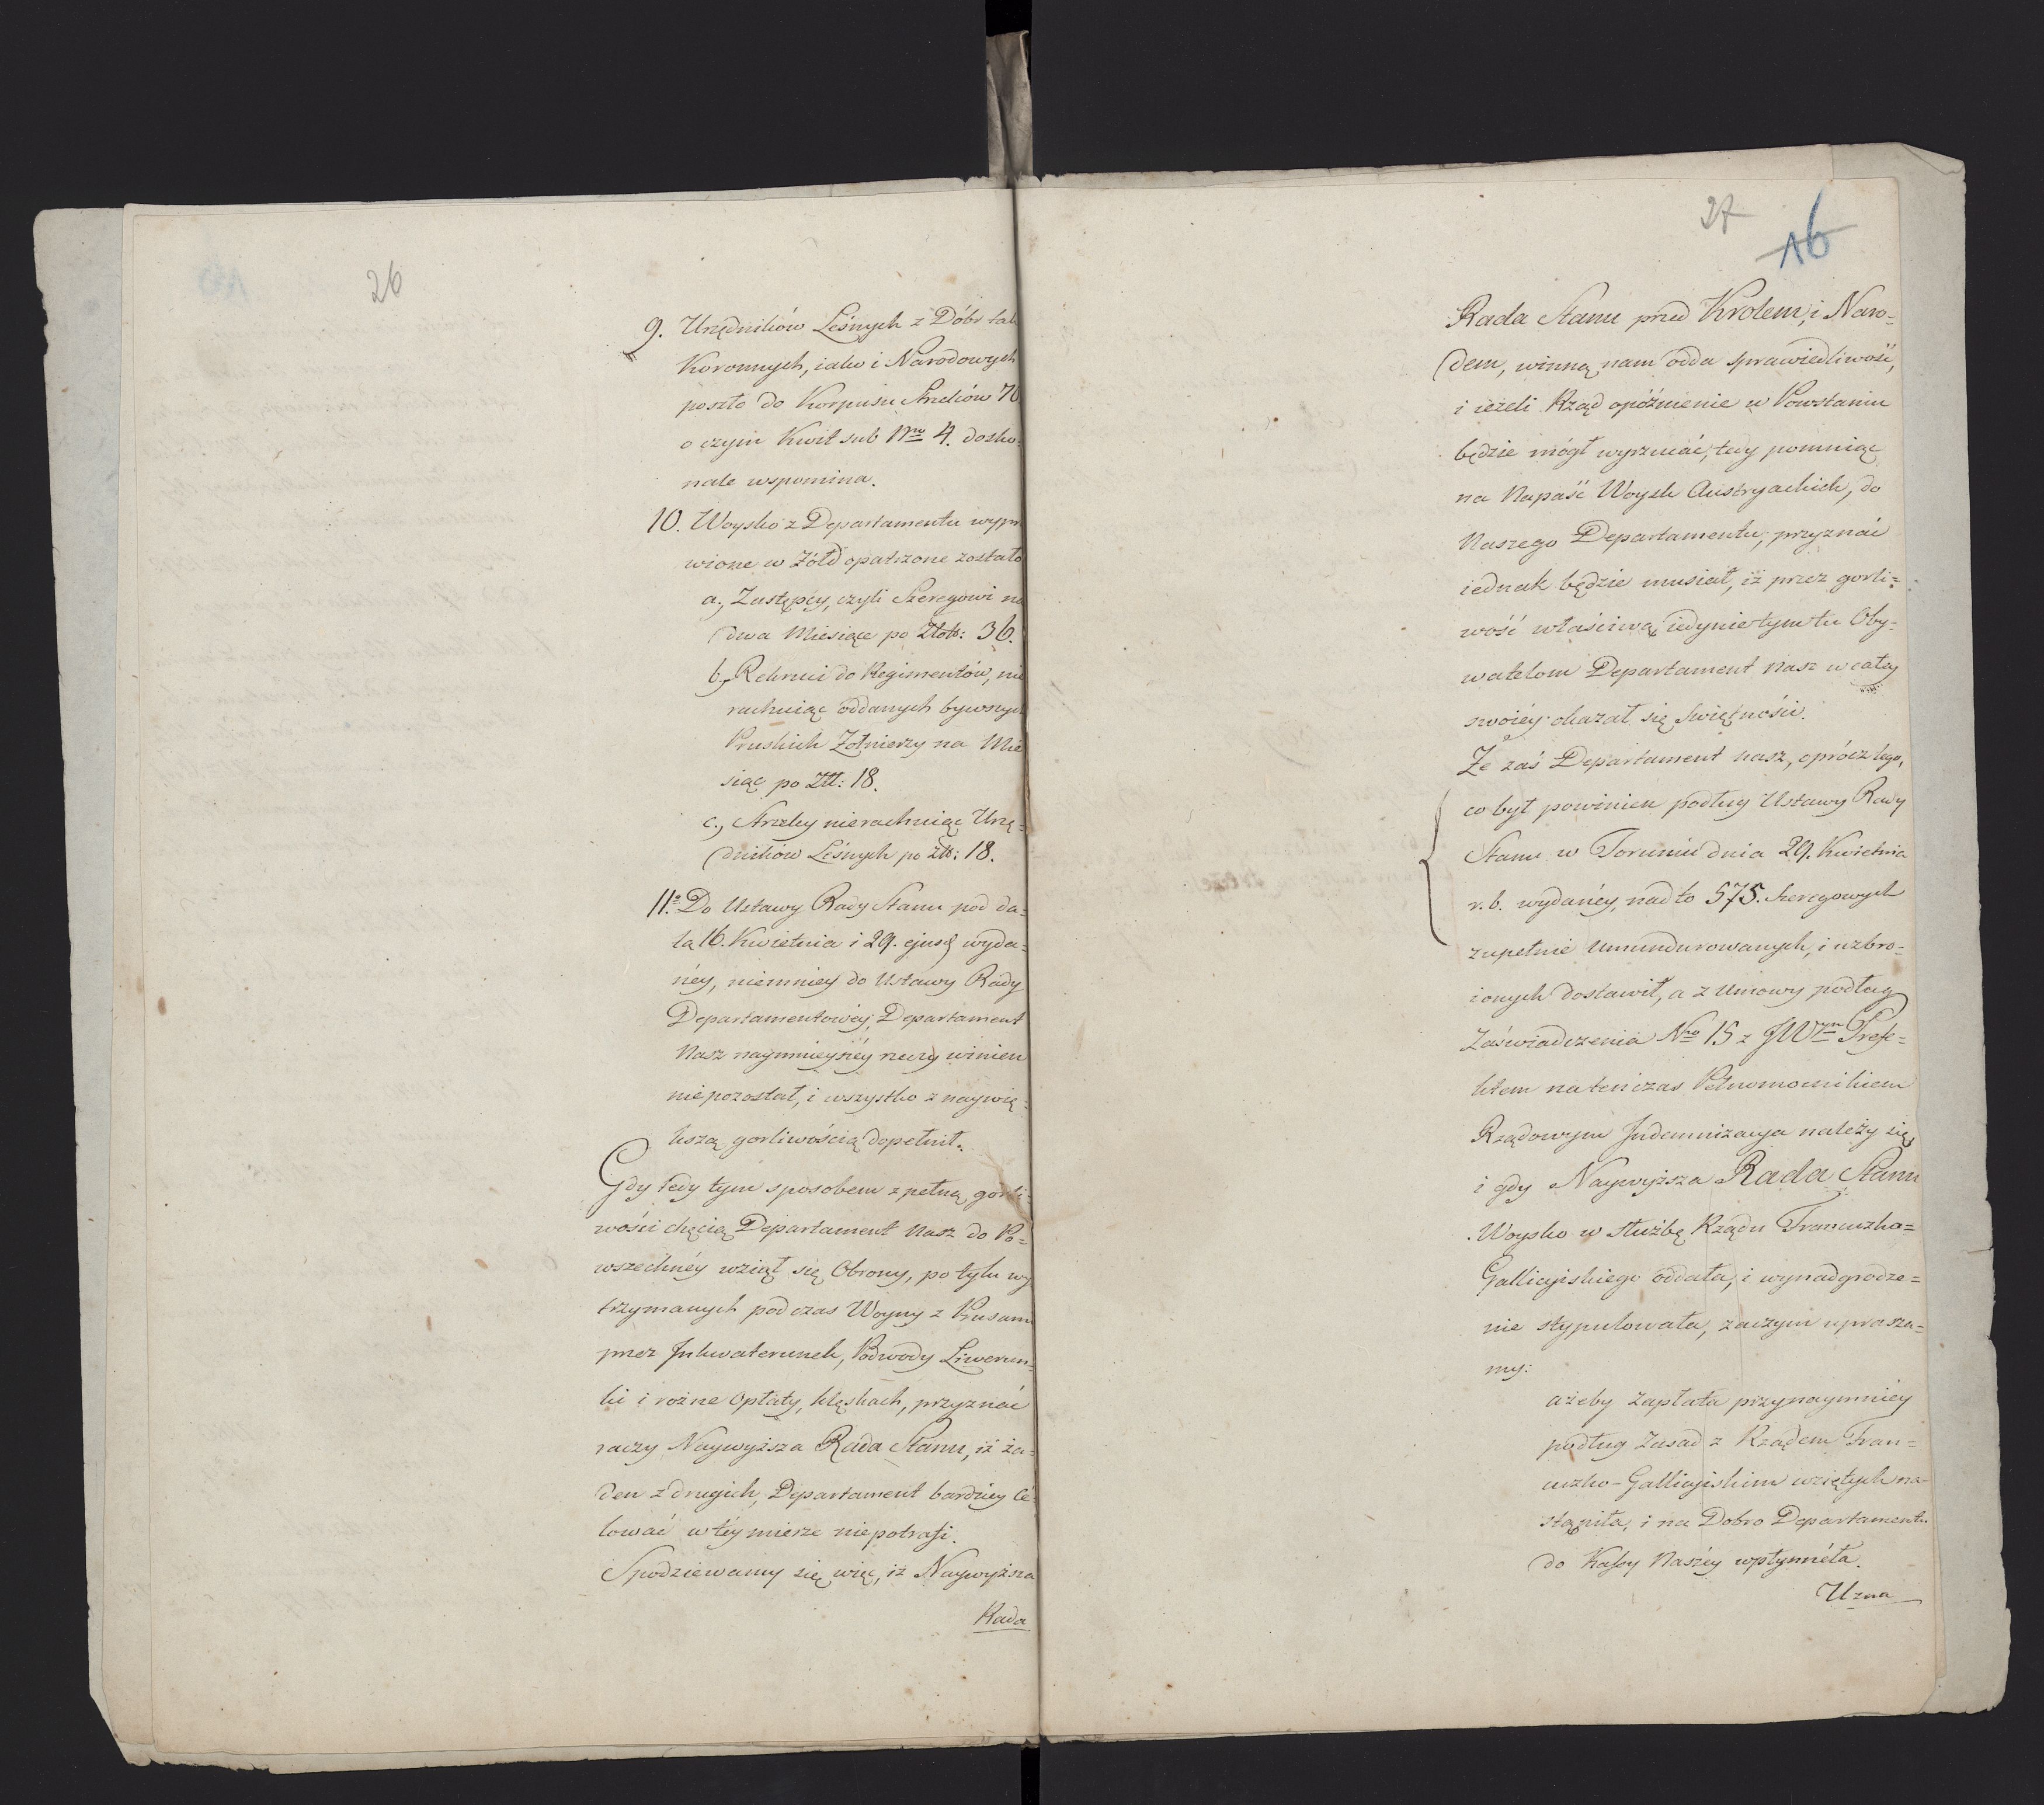 26
9. Urzędników Leśnych z Dóbr tak
Koronnych, iako i Narodowych
poszło do Korpusu Strzelców 70
o czym Kwit sub Nro 4. dosko-
nale wspomina.
10. Woysko z Departamentu wypra
wione w Żółd opatrzone zostało
a., Zastępcy, czyli Szeregowi na
dwa Miesiące po Złoto: 36.
b., Rekruci do Regimentów, nie
rachuiąc oddanych bywszych
Pruskich Żołnierzy na Mie
siąc po Ztt: 18.
c., Strzelcy nierachuiąc Urzę=
dników Leśnych po Ztt: 18.
11.o Do Ustawy Rady Stanu pod da=
tą 16. Kwietnia i 29. ejusd wyda=
néy, niemniey do Ustawy Rady
Departamentowéy, Departament
Nasz naymnieyszéy rzeczy winien
niepozostał, i wszystko z naywię=
kszą gorliwością dopełnił.
Gdy tedy tym sposobem z pełną gorli=
wości chęcią Departament Nasz do Po=
wszechnéy wziął się Obrony, po tylu wy
trzymanych podczas Woyny z Prusami
przez Inkwaterunek, Podwody Liwerun=
ki i rożne Opłaty, klęskach, przyznać
raczy Naywyższa Rada Stanu, iż ża=
den z drugich, Departament bardziey ce=
lować w téy mierze niepotrafi.
Spodziewamy się więc, iż Naywyższa
Rada
27
16
Rada Stanu przed Krolem, i Naro=
dem, winną nam odda sprawiedliwość,
i ieżeli Rząd opóźnienie w Powstaniu
będzie mógł wyrzucać, tedy pomniąc
na Napaść Woysk Austryackich, do
Naszego Departamentu, przyznać
iednak będzie musiał, iż przez gorli=
wość właściwą iedynie tym tu Oby=
watelom Departament Nasz w całey
swoiéy okazał się Świętności.
Że zaś Departament nasz, oprócz tego,
co był powinien podług Ustawy Rady
Stanu w Toruniu dnia 29. Kwietnia
r. b. wydanéy, nad to 575. Szeregowych
zupełnie Umundurowanych, i uzbro=
ionych dostawił, a z Umowy podług
Zaświadczenia Nro 15 z JWym Prefe=
ktem natenczas Pełnomocnikiem
Rządowym Indemnizacya należy się,
i gdy Naywyższa Rada Stanu
Woysko w służbę Rządu Francuzko=
Gallicyiskiego oddała, i wynadgrodze=
nie stypulowała, zaczym uprasza=
my:
ażeby Zapłata przynaymniéy
podług Zasad z Rządem Fran=
cuzko-Gallicyiskim wziętych na=
stąpiła, i na Dobro Departamentu
do Kassy Naszéy wpłynnéła.
Uzna